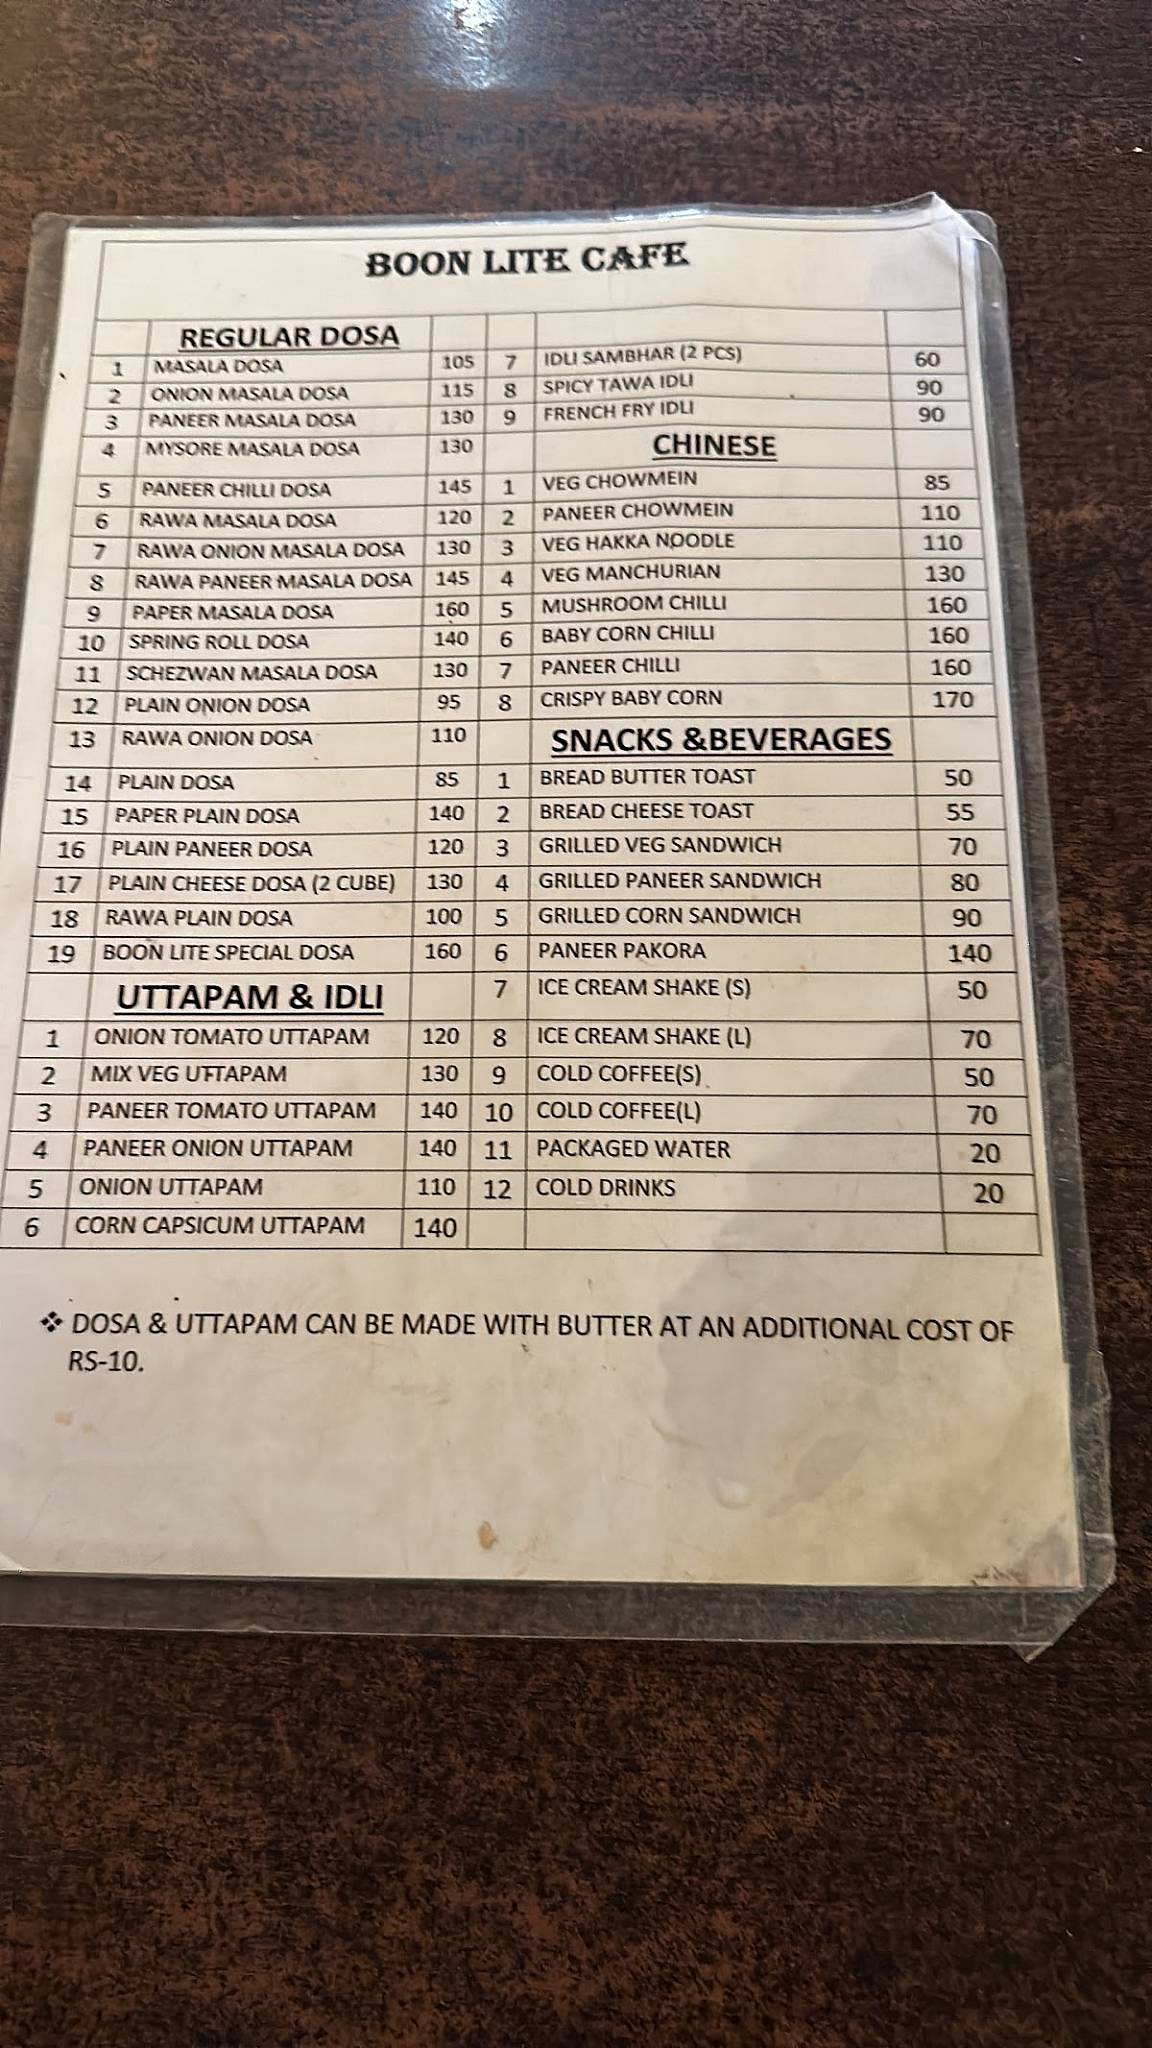 BOON LITE CAFE
REGULAR DOSA
1 MASALA DOSA 105
2 ONION MASALA DOSA 115
3 PANEER MASALA DOSA 130
4 MYSORE MASALA DOSA 130
5 PANEER CHILLI DOSA 145
6 RAWA MASALA DOSA 120
7 RAWA ONION MASALA DOSA 130
8 RAWA PANEER MASALA DOSA 145
9 PAPER MASALA DOSA 160
10 SPRING ROLL DOSA 140
11 SCHEZWAN MASALA DOSA 130
12 PLAIN ONION DOSA 95
13 RAWA ONION DOSA 110
14 PLAIN DOSA 85
15 PAPER PLAIN DOSA 140
16 PLAIN PANEER DOSA 120
17 PLAIN CHEESE DOSA (2 CUBE) 130
18 RAWA PLAIN DOSA 100
19 BOON LITE SPECIAL DOSA 160
UTTAPAM & IDLI
1 ONION TOMATO UTTAPAM 120
2 MIX VEG UTTAPAM 130
3 PANEER TOMATO UTTAPAM 140
4 PANEER ONION UTTAPAM 140
5 ONION UTTAPAM 110
6 CORN CAPSICUM UTTAPAM 140
7 IDLI SAMBHAR (2 PCS) 60
8 SPICY TAWA IDLI 90
9 FRENCH FRY IDLI 90
CHINESE
1 VEG CHOWMEIN 85
2 PANEER CHOWMEIN 110
3 VEG HAKKA NOODLE 110
4 VEG MANCHURIAN 130
5 MUSHROOM CHILLI 160
6 BABY CORN CHILLI 160
7 PANEER CHILLI 160
8 CRISPY BABY CORN 170
SNACKS &BEVERAGES
1 BREAD BUTTER TOAST 50
2 BREAD CHEESE TOAST 55
3 GRILLED VEG SANDWICH 70
4 GRILLED PANEER SANDWICH 80
5 GRILLED CORN SANDWICH 90
6 PANEER PAKORA 140
7 ICE CREAM SHAKE (S) 50
8 ICE CREAM SHAKE (L) 70
9 COLD COFFEE(S) 50
10 COLD COFFEE(L) 70
11 PACKAGED WATER 20
12 COLD DRINKS 20
❖ DOSA & UTTAPAM CAN BE MADE WITH BUTTER AT AN ADDITIONAL COST OF
RS-10.